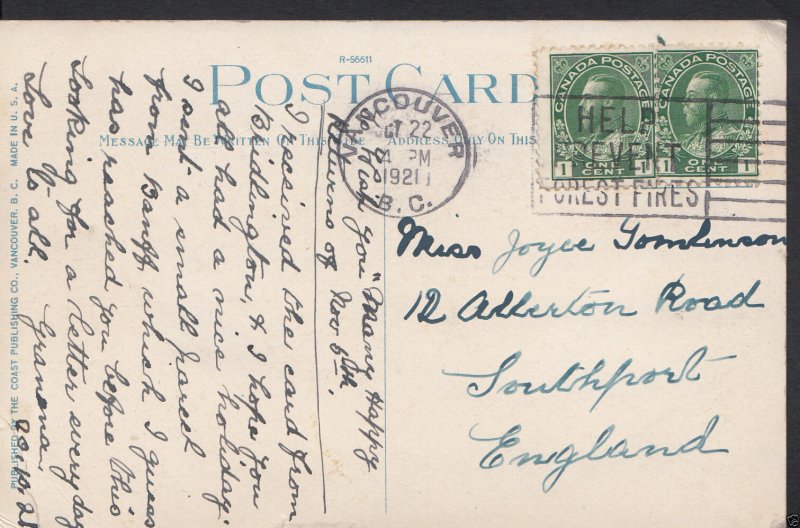 R-56611
POST CARD
MESSAGE MAY BE WRITTEN ON THIS SIDE
ADDRESS ONLY ON THIS
VANCOUVER
OCT 22
4 PM
1921
B.C.
CANADA POSTAGE
1 ONE CENT 1
CANADA POSTAGE
1 ONE CENT 1
HELP
PREVENT
FOREST FIRES
Miss Joyce Tomlinson
12 Allerton Road
Southport
England
Wish you "Many Happy
Returns of Nov 6th.
I received the card from
Bridlington, & I hope you
all had a nice holiday.
I sent a small parcel
from Banff, which I guess
has reached you before this
Looking for a letter every day
Love to all. Granma.
PUBLISHED BY THE COAST PUBLISHING CO., VANCOUVER, B. C. MADE IN U. S. A.